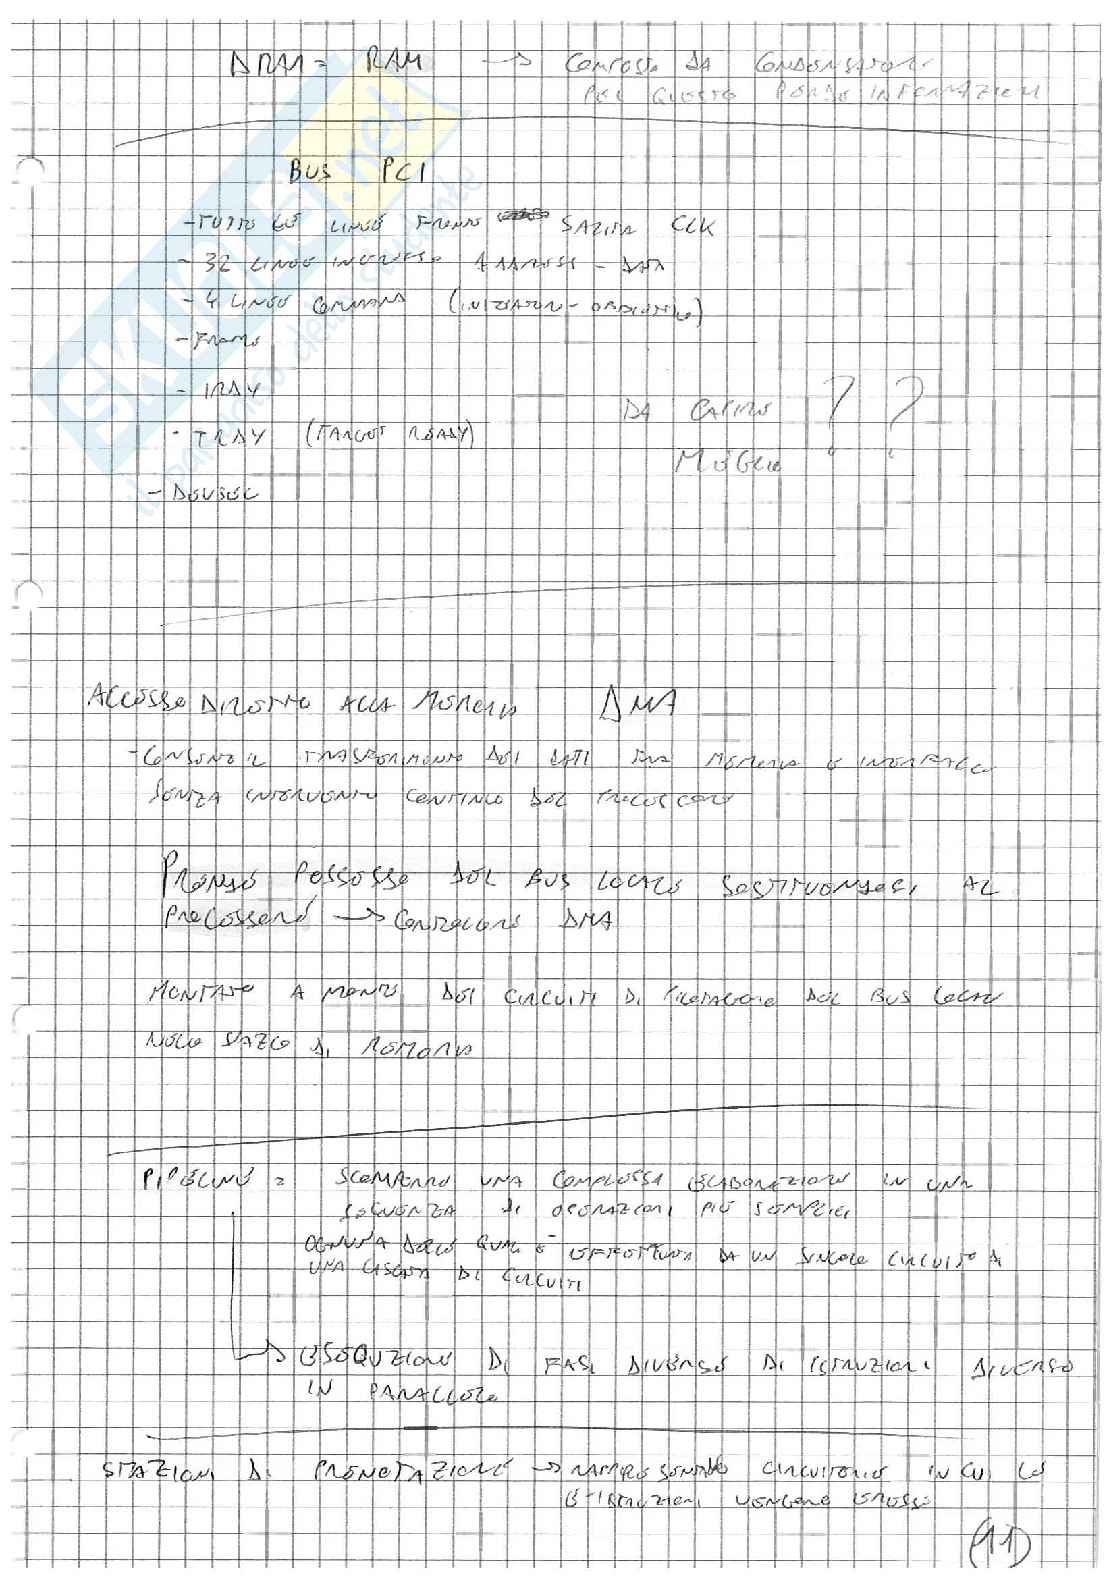 DRAM = RAM → COMPOSTA DA CONDENSATORI
PER QUESTO PERDE INFORMAZIONI
BUS PCI
- TUTTE LE LINEE FRONTE SALITA CLK
- 32 LINEE ADDRESS - DATA
- 4 LINEE COMMAND
- FRAME
- IRDY
- TRDY (TARGET READY)
DA CAPIRE ? ?
MEGLIO
- DEVSEL
ACCESSO DIRETTO ALLA MEMORIA DMA
- CONSENTE IL TRASFERIMENTO DEI DATI FRA MEMORIA E INTERFACCE
SENZA INTERVENTO CONTINUO DEL PROCESSORE
PRENDE POSSESSO DEL BUS LOCALE SOSTITUENDOSI AL
PROCESSORE → CONTROLLORE DMA
MONTATO A MONTE DEI CIRCUITI DI PILOTAGGIO DEL BUS LOCALE
NELLO SPAZIO DI MEMORIA
PIPELINE = SCOMPORRE UNA COMPLESSA ELABORAZIONE IN UNA
SEQUENZA DI OPERAZIONI PIÙ SEMPLICI
OGNUNA DELLE QUALI È EFFETTUATA DA UN SINGOLO CIRCUITO DI
UNA CASCATA DI CIRCUITI
→ ESEQUZIONE DI FASI DIVERSE DI ISTRUZIONI DIVERSE
IN PARALLELO
STAZIONI DI PRENOTAZIONE → RAPPRESENTANO CIRCUITERIE IN CUI LE
E-ISTRUZIONI VENGONO EMESSE
(11)
SKUOLA.net
il paradiso dello studente